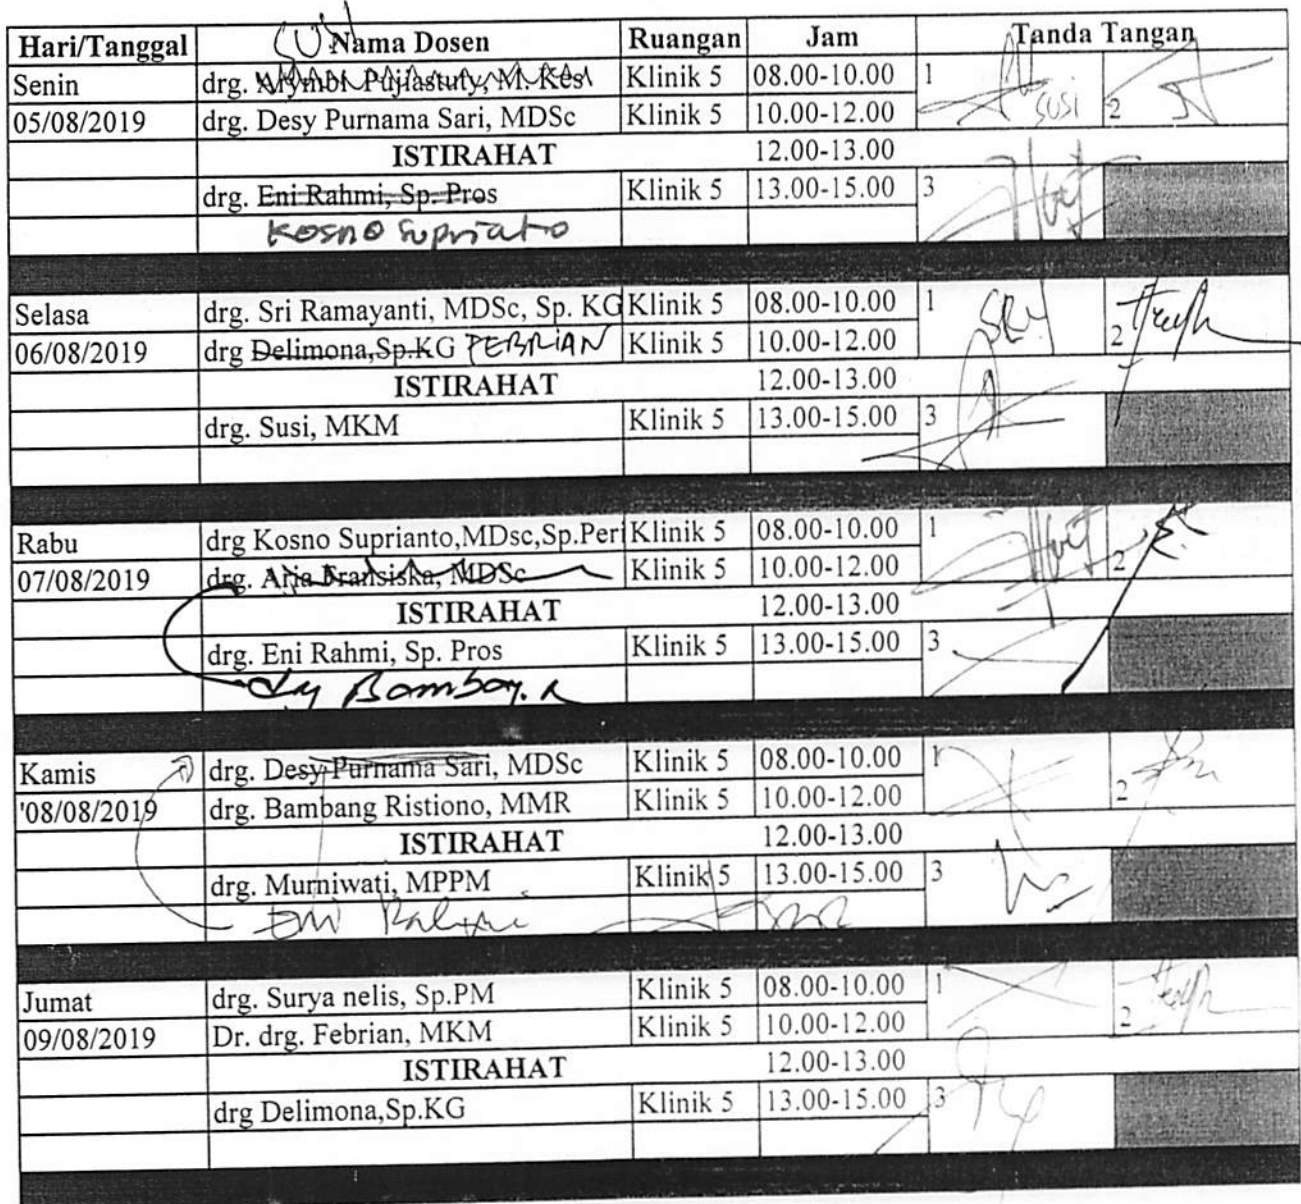 SUSI
Hari/Tanggal Nama Dosen Ruangan Jam Tanda Tangan
Senin drg. Pujiastuty, M. Kes Klinik 5 08.00-10.00 1
SUSI
05/08/2019 drg. Desy Purnama Sari, MDSc Klinik 5 10.00-12.00 2
ISTIRAHAT 12.00-13.00
drg. Eni Rahmi, Sp. Pros Klinik 5 13.00-15.00 3
Kosno Supriato
Selasa drg. Sri Ramayanti, MDSc, Sp. KG Klinik 5 08.00-10.00 1
06/08/2019 drg Delimona,Sp.KG FEBRIAN Klinik 5 10.00-12.00 2
ISTIRAHAT 12.00-13.00
drg. Susi, MKM Klinik 5 13.00-15.00 3
Rabu drg Kosno Suprianto,MDsc,Sp.Peri Klinik 5 08.00-10.00 1
07/08/2019 drg. Fransiska, MDSc Klinik 5 10.00-12.00 2
ISTIRAHAT 12.00-13.00
drg. Eni Rahmi, Sp. Pros Klinik 5 13.00-15.00 3
Kamis drg. Desy Purnama Sari, MDSc Klinik 5 08.00-10.00 1
'08/08/2019 drg. Bambang Ristiono, MMR Klinik 5 10.00-12.00 2
ISTIRAHAT 12.00-13.00
drg. Murniwati, MPPM Klinik 5 13.00-15.00 3
Eni Rahmi
Jumat drg. Surya nelis, Sp.PM Klinik 5 08.00-10.00 1
09/08/2019 Dr. drg. Febrian, MKM Klinik 5 10.00-12.00 2
ISTIRAHAT 12.00-13.00
drg Delimona,Sp.KG Klinik 5 13.00-15.00 3